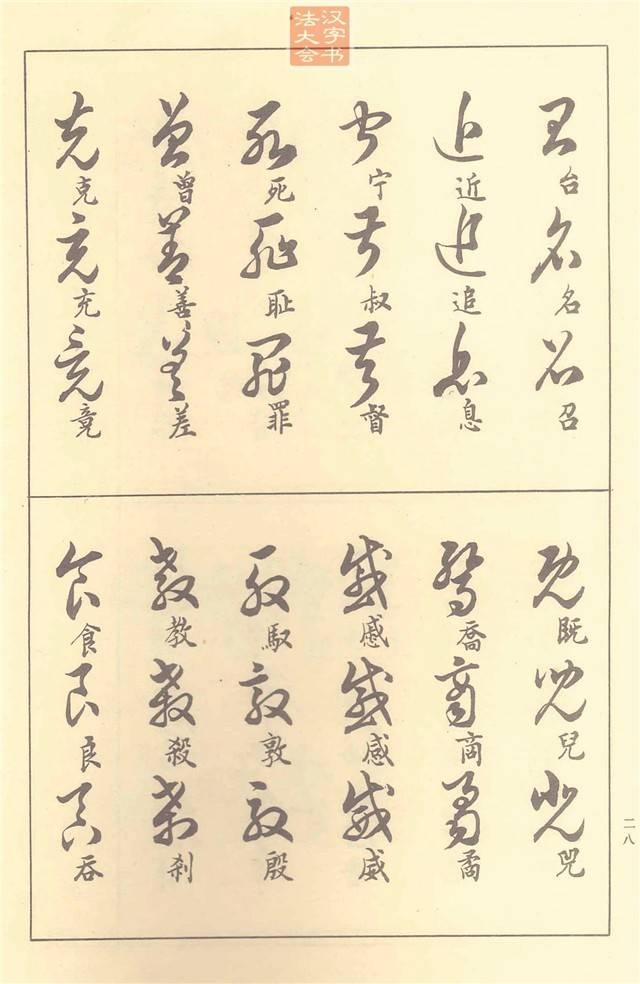 汉字书
法大会
台名召
近追息
宁叔督
死耻罪
曾善差
克充竟
既兒
喬商矞
感威
馭敦殷
教殺刹
食良吞
二八